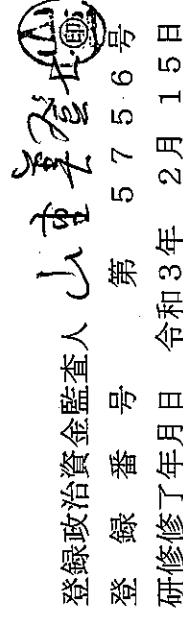 登録政治資金監査人 山重
登録番号 第5756号
研修修了年月日 令和3年 2月 15日